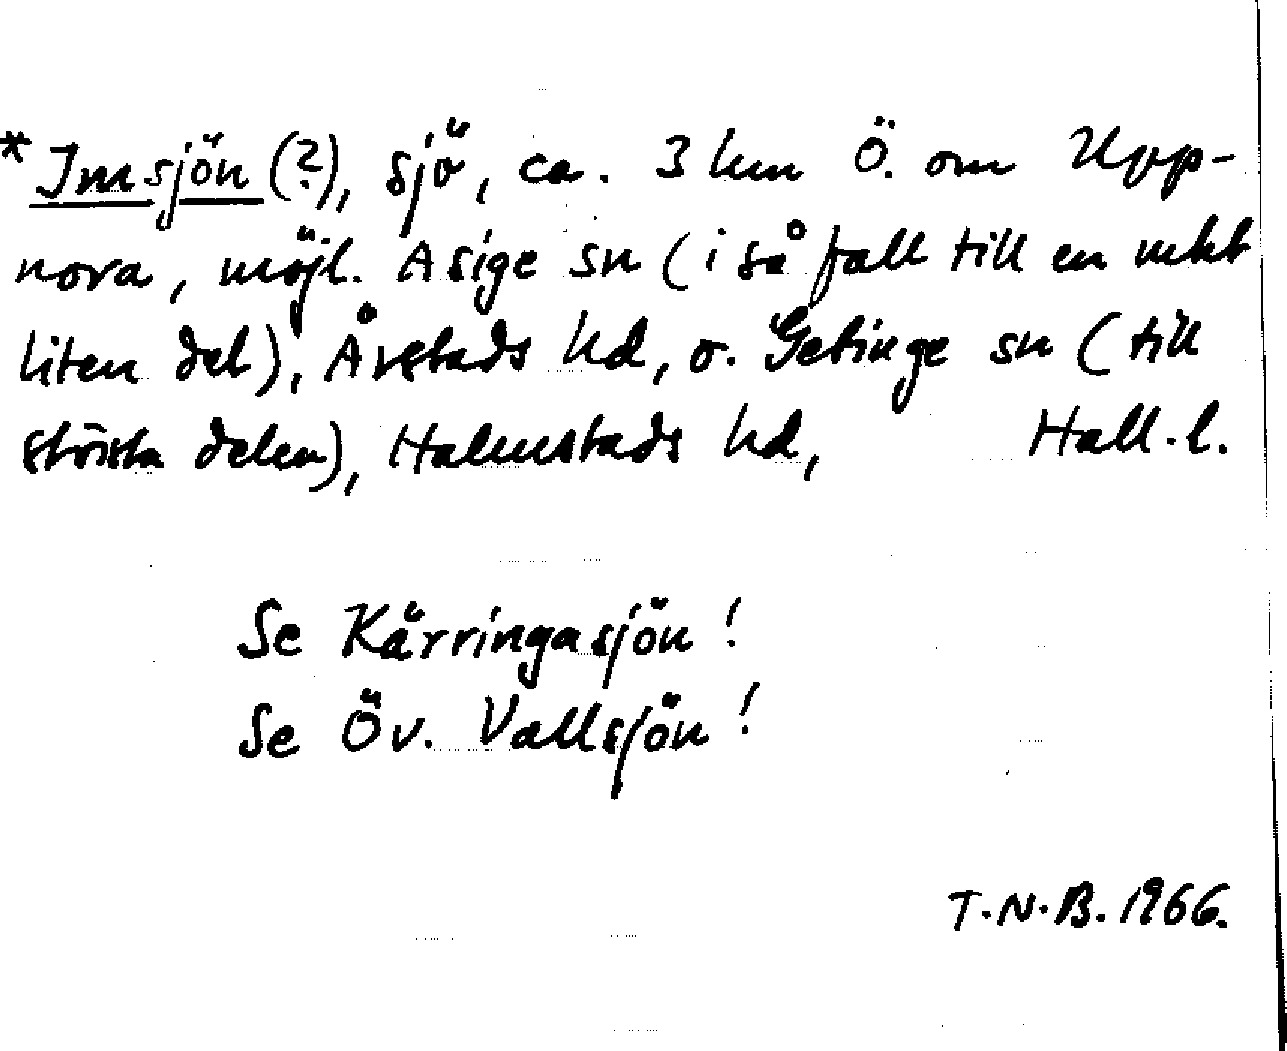 *Imsjön (?), sjö, ca. 3 km Ö. om Upp-
nora, möjl. Asige sn (i så fall till en mkt
liten del), Årstads hd, o. Getinge sn (till
största delen), Halmstads hd, Hall. l.
Se Kärringasjön!
Se Öv. Vallsjön!
T.N.B. 1966.